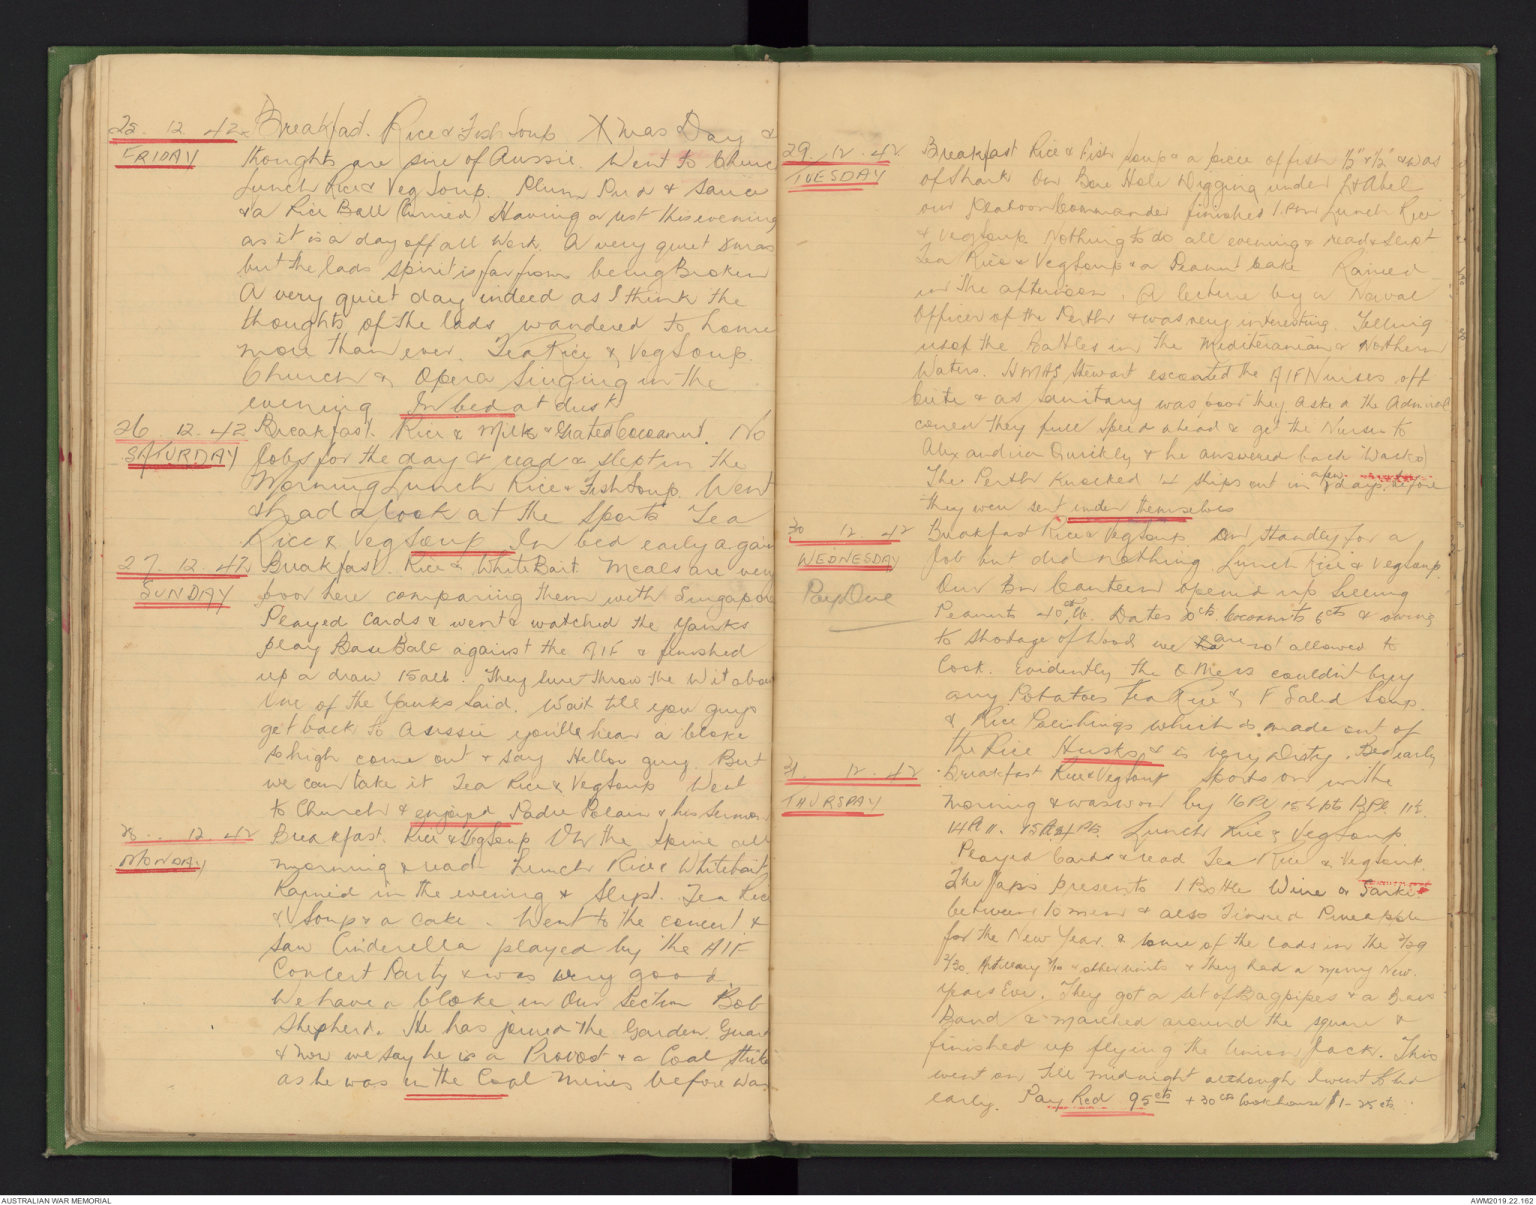 25. 12. 42. Breakfast. Rice & Fish Soup Xmas Day &
FRIDAY thoughts are sure of Aussie. Went to Church
Lunch Rice & Veg Soup. Plum Pud & Sauce
& a Rice Ball (Curried) Having a rest this evening
as it is a day off all Work. A very quiet Xmas
but the lads spirit is far from being Broken
A very quiet day indeed as I think the
thoughts of the lads wandered to home
more than ever. Tea Rice & Veg Soup.
Church & Opera Singing in the
evening In bed at dusk
26 12. 42 Breakfast. Rice & Milk & Grated Cocoanut. No
SATURDAY Jobs for the day & read & slept in the
Morning Lunch Rice & Fish Soup. Went
& had a look at the Sports Tea
Rice & Veg Soup In bed early again
27. 12. 42 Breakfast. Rice & White Bait. Meals are very
SUNDAY poor here comparing them with Singapore
Played Cards & went & watched the Yanks
play Base Ball against the AIF & finished
up a draw 15 all. They sure throw the wit about
One of the Yanks said. Wait till you guys
get back to Aussie you'll hear a bloke
so high come out & say Hellow guy. But
we can take it Tea Rice & Veg Soup Went
to Church & enjoyed Padre Polain & his Sermon
28. 12. 42 Breakfast. Rice & Veg Soup On the Spine all
MONDAY morning & read Lunch Rice & Whitebait
Rained in the evening & Slept. Tea Rice
& Soup & a cake. Went to the concert &
saw Cinderella played by the AIF
Concert Party & was very good
We have a bloke in Our Section Bob
Shepherd. He has joined the Garden Guard
& now we say he is a Provost & a Coal Strike
as he was in the Coal Mines before War
29. 12. 42 Breakfast Rice & Fish Soup & a piece of fish ½" x ½" & was
TUESDAY of Shark Our Bore Hole Digging under Lt Abel
our Platoon Commander finished 1.PM Lunch Rice
& Veg Soup. Nothing to do all evening & read & slept
Tea Rice & Veg Soup & a Peanut Cake Rained
in the afternoon. A lecture by a Naval
Officer of the Perth & was very interesting. Telling
us of the Battles in the Mediteranian & Northern
Waters. HMAS Stewart escorted the AIF Nurses off
Crete & as sanitary was poor they asked the Admiral
could they full speed ahead & get the Nurses to
Alexandria Quickly & he answered back (Wacko)
The Perth knocked 4 ships out in a few days before
they were sent under themselves
30 12. 42 Breakfast Rice & Veg Soup On Standby for a
WEDNESDAY Job but did nothing. Lunch Rice & Veg Soup.
Our Bn Canteen opened up selling
Pay Due Peanuts 40 cts lb. Dates Cocoanuts 6 cts & owing
to shortage of Wood we are not allowed to
Cook. Evidently the O Mess couldn't buy
any Potatoes Tea Rice & Soup.
& Rice Polishings which is made out of
the Rice Husks & is very Dirty. Bed early
31. 12. 42 Breakfast Rice & Veg Soup Sports on in the
THURSDAY morning & was won by 16 Pl 15½ pts 13 Pl 11½
14 Pl 11. 15 Pl 4 Pts. Lunch Rice & Veg Soup
Played Cards & read Tea Rice & Veg Soup.
The Japs presents 1 Bottle Wine or Sarke
between 10 men & also Tinned Pineapple
for the New Year. & some of the lads in the 2/29
2/30. Artillery 2/10 & other units & they had a merry New.
Years Eve. They got a set of Bagpipes & a Brass
Band & marched around the square &
finished up flying the Union Jack. This
went on till midnight although I went to bed
early. Pay Recd 95 cts + 30 cts Cookhouse $1-25 cts
AUSTRALIAN WAR MEMORIAL
AWM2019.22.162